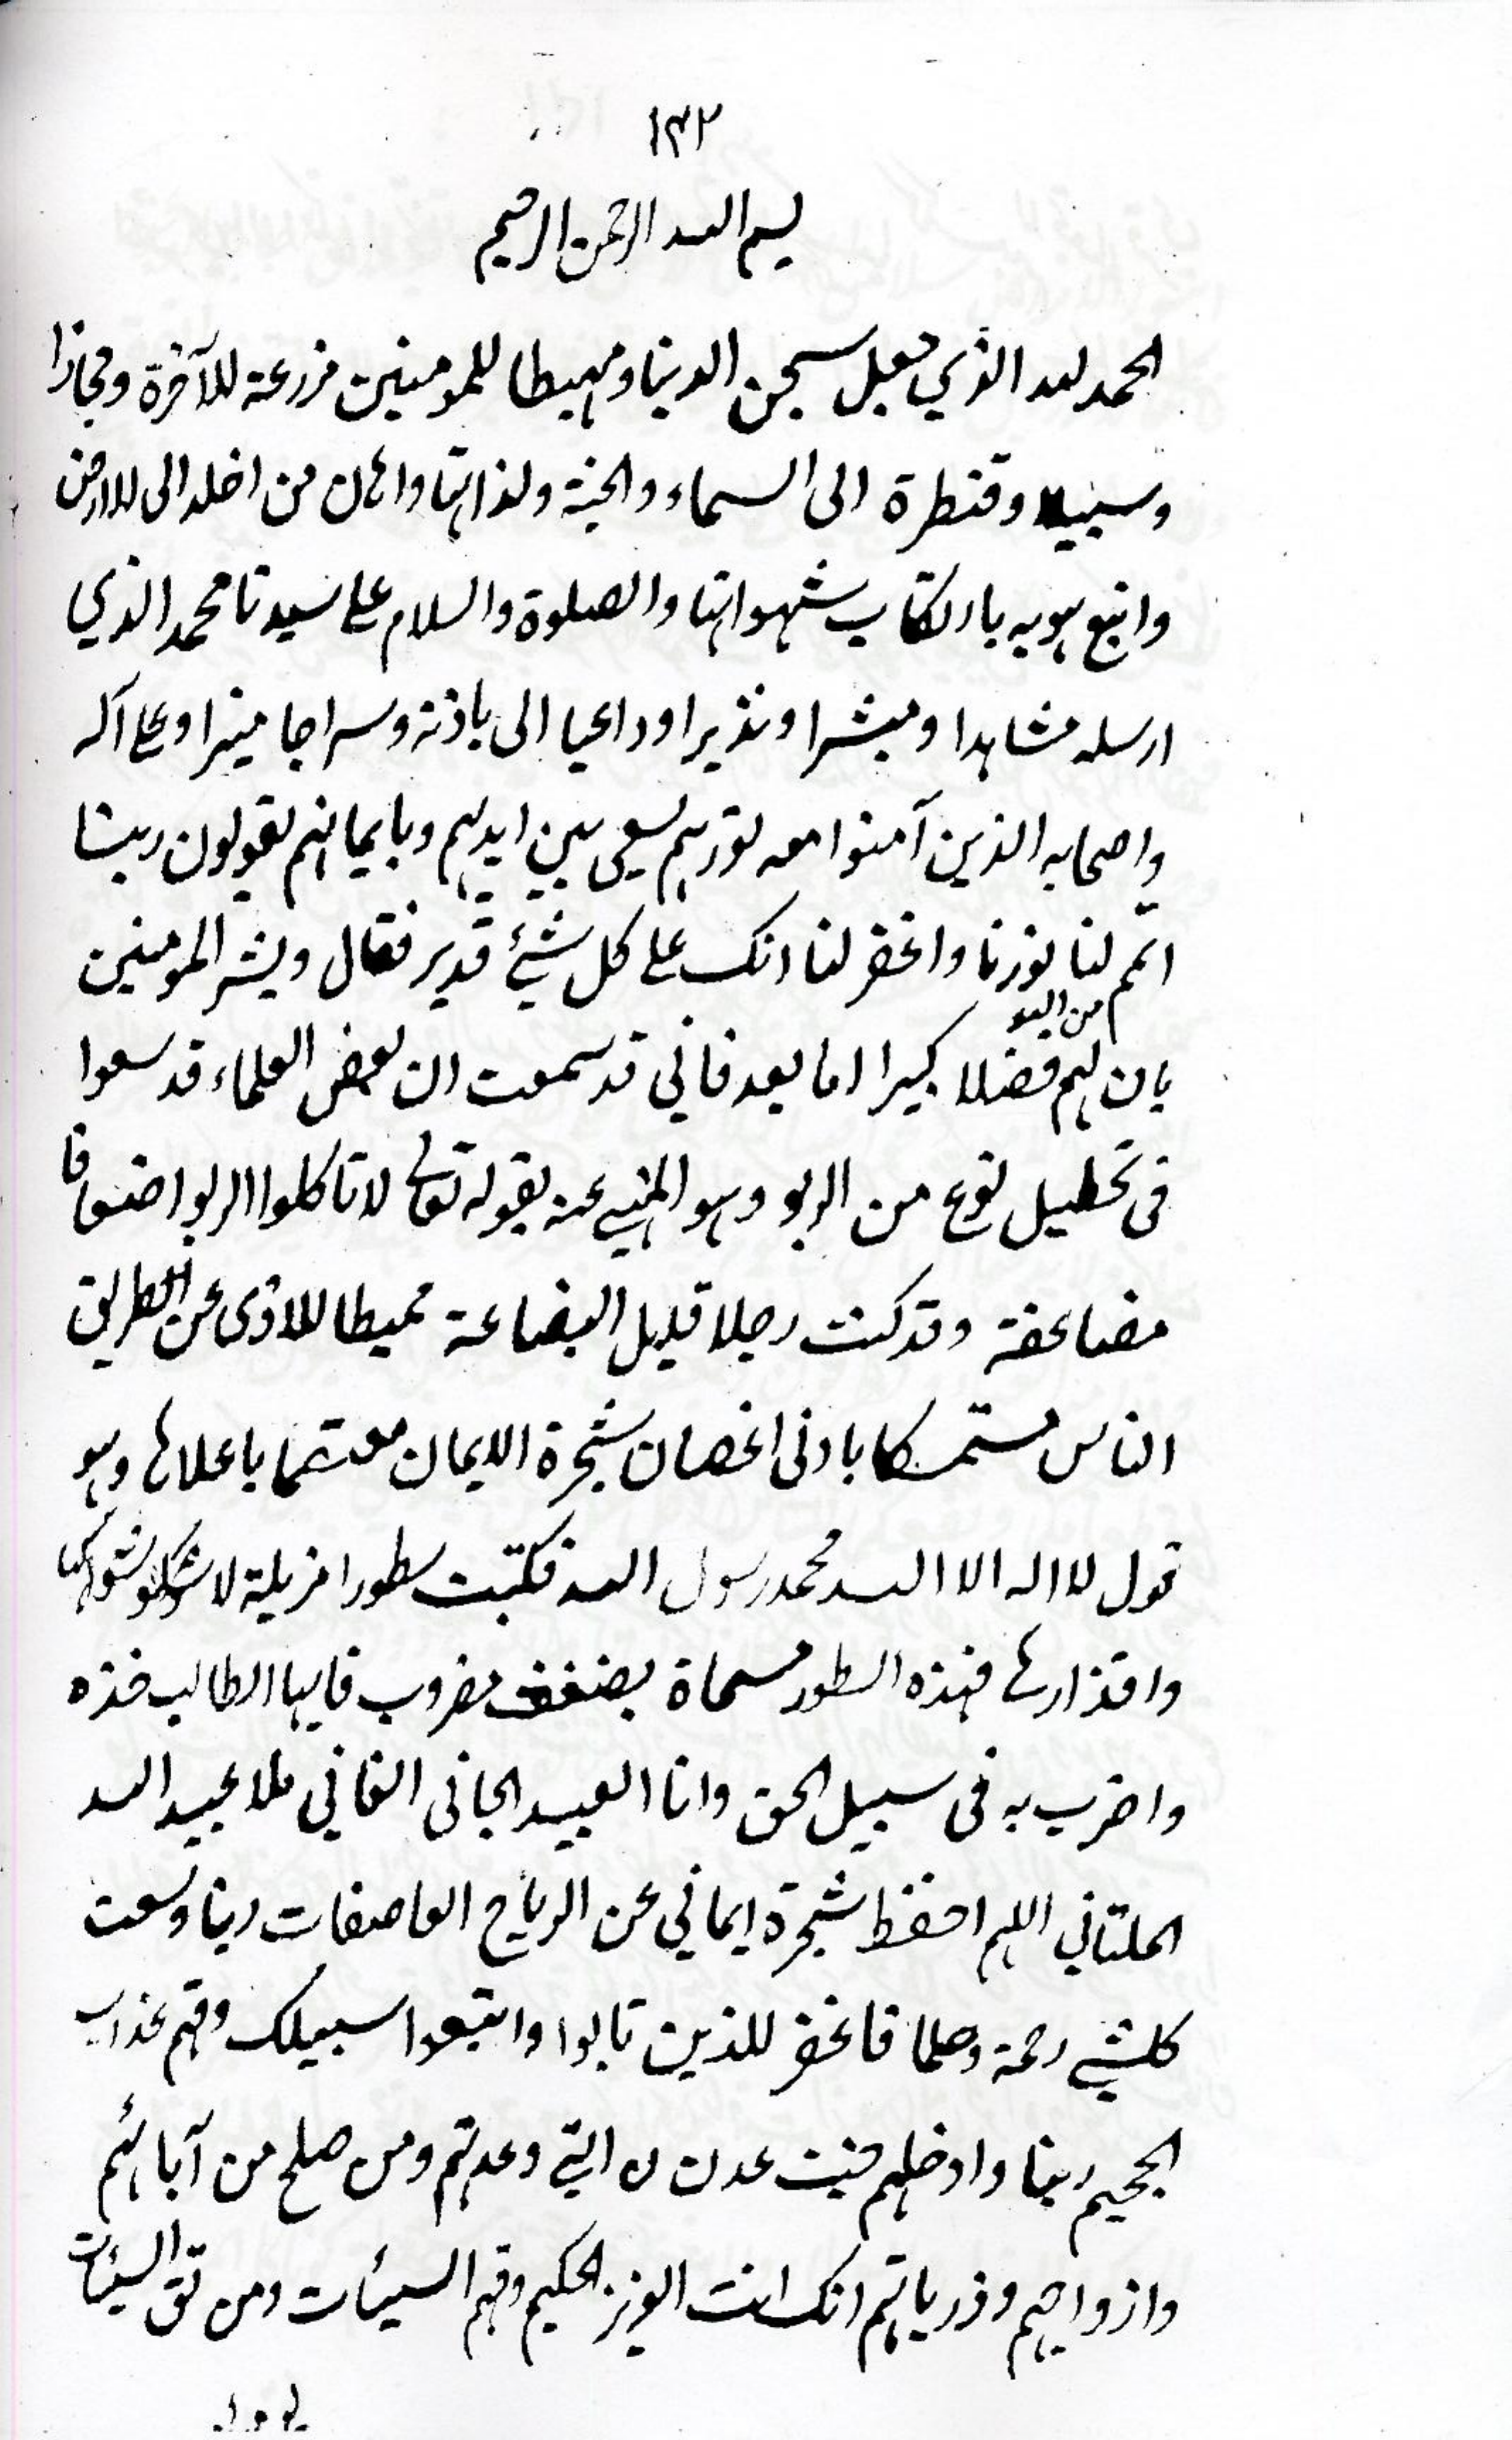 ١٣٢
بسم الله الرحمن الرحيم
الحمد لله الذي جعل سجن الدنيا ومهبطا للمومنين مزرعة للآخرة ومجازا
وسبيلا وقنطرة الى السماء والجنة ولذاتها واهان من اخلد الى الارض
واتبع هويه بارتكاب شهواتها والصلوة والسلام على سيدنا محمد الذي
ارسله شاهدا ومبشرا ونذيرا وداعيا الى باذنه وسراجا منيرا وعلى آله
واصحابه الذين آمنوا معه نورهم يسعى بين ايديهم وبايمانهم يقولون ربنا
اتمم لنا نورنا واغفر لنا انك على كل شئ قدير فقال وبشر المومنين
بان لهم من الله فضلا كبيرا اما بعد فاني قد سمعت ان بعض العلماء قد سعوا
فى تحليل نوع من الربو وهو المنهي عنه بقوله تعالى لا تاكلوا الربوا اضعافا
مضاعفة وقد كنت رجلا قليل البضاعة مميطا للاذى عن الطريق
الناس مستمسكا بادنى اغصان شجرة الايمان معتصما باعلاها وهو
قول لا اله الا الله محمد رسول الله فكتبت سطورا مزيلة لا
واقذارها فهذه السطور مسماة بضغف مضروب فايها الطالب خذه
واضرب به فى سبيل الحق وانا العبيد الجانى الفاني ملا عبيد الله
الملتاني اللهم احفظ شجرة ايماني عن الرياح العاصفات ربنا وسعت
كلشيي رحمة وعلما فاغفر للذين تابوا واتبعوا سبيلك وقهم عذاب
الجحيم ربنا وادخلهم جنت عدن ن التي وعدتهم ومن صلح من آبائهم
وازواجهم وذرياتهم انك انت العزيز الحكيم وقهم السيئات ومن تق السيئات
يومئذ